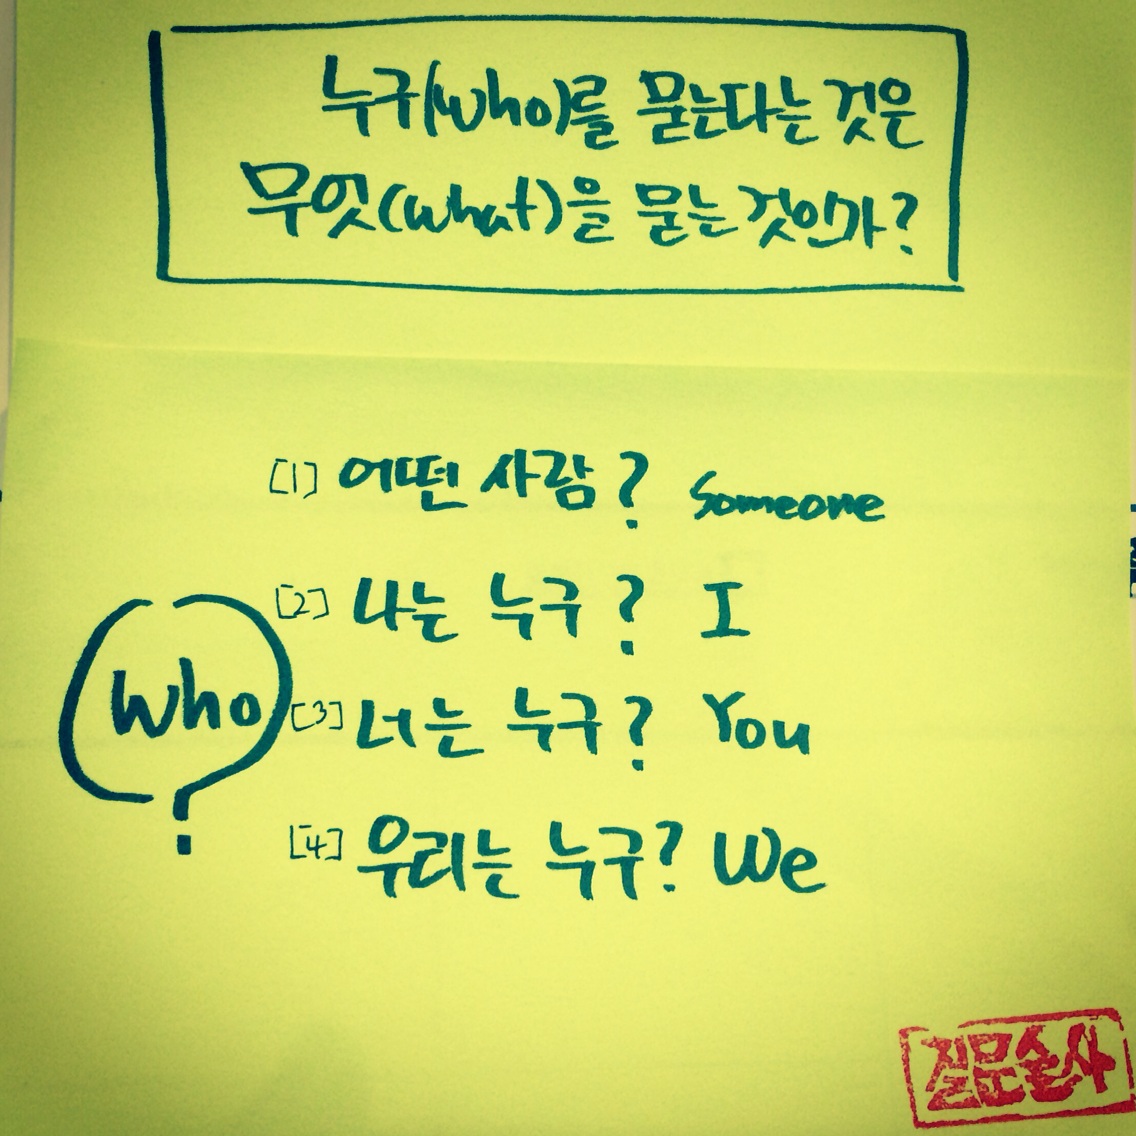 누구(who)를 묻는다는 것은
무엇(what)을 묻는 것인가?
[1] 어떤 사람? Someone
[2] 나는 누구? I
who
?
[3] 너는 누구? You
[4] 우리는 누구? We
질문술사